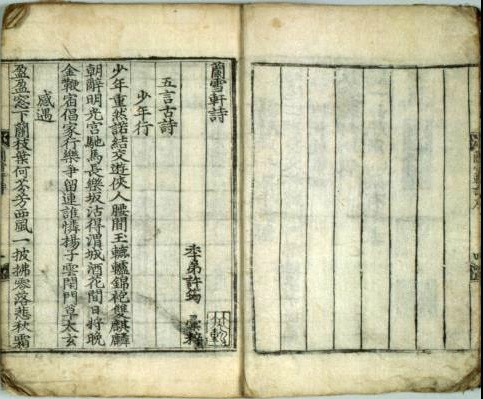 蘭雪軒詩
季弟許筠彙粹
五言古詩
少年行
少年重然諾結交遊俠人腰間玉轆轤錦袍雙麒麟
朝辭明光宮馳馬長樂坂沽得渭城酒花間日將晩
金鞭宿倡家行樂爭留連誰憐揚子雲閉門草太玄
感遇
盈盈窓下蘭枝葉何芬芳西風一披拂零落悲秋霜